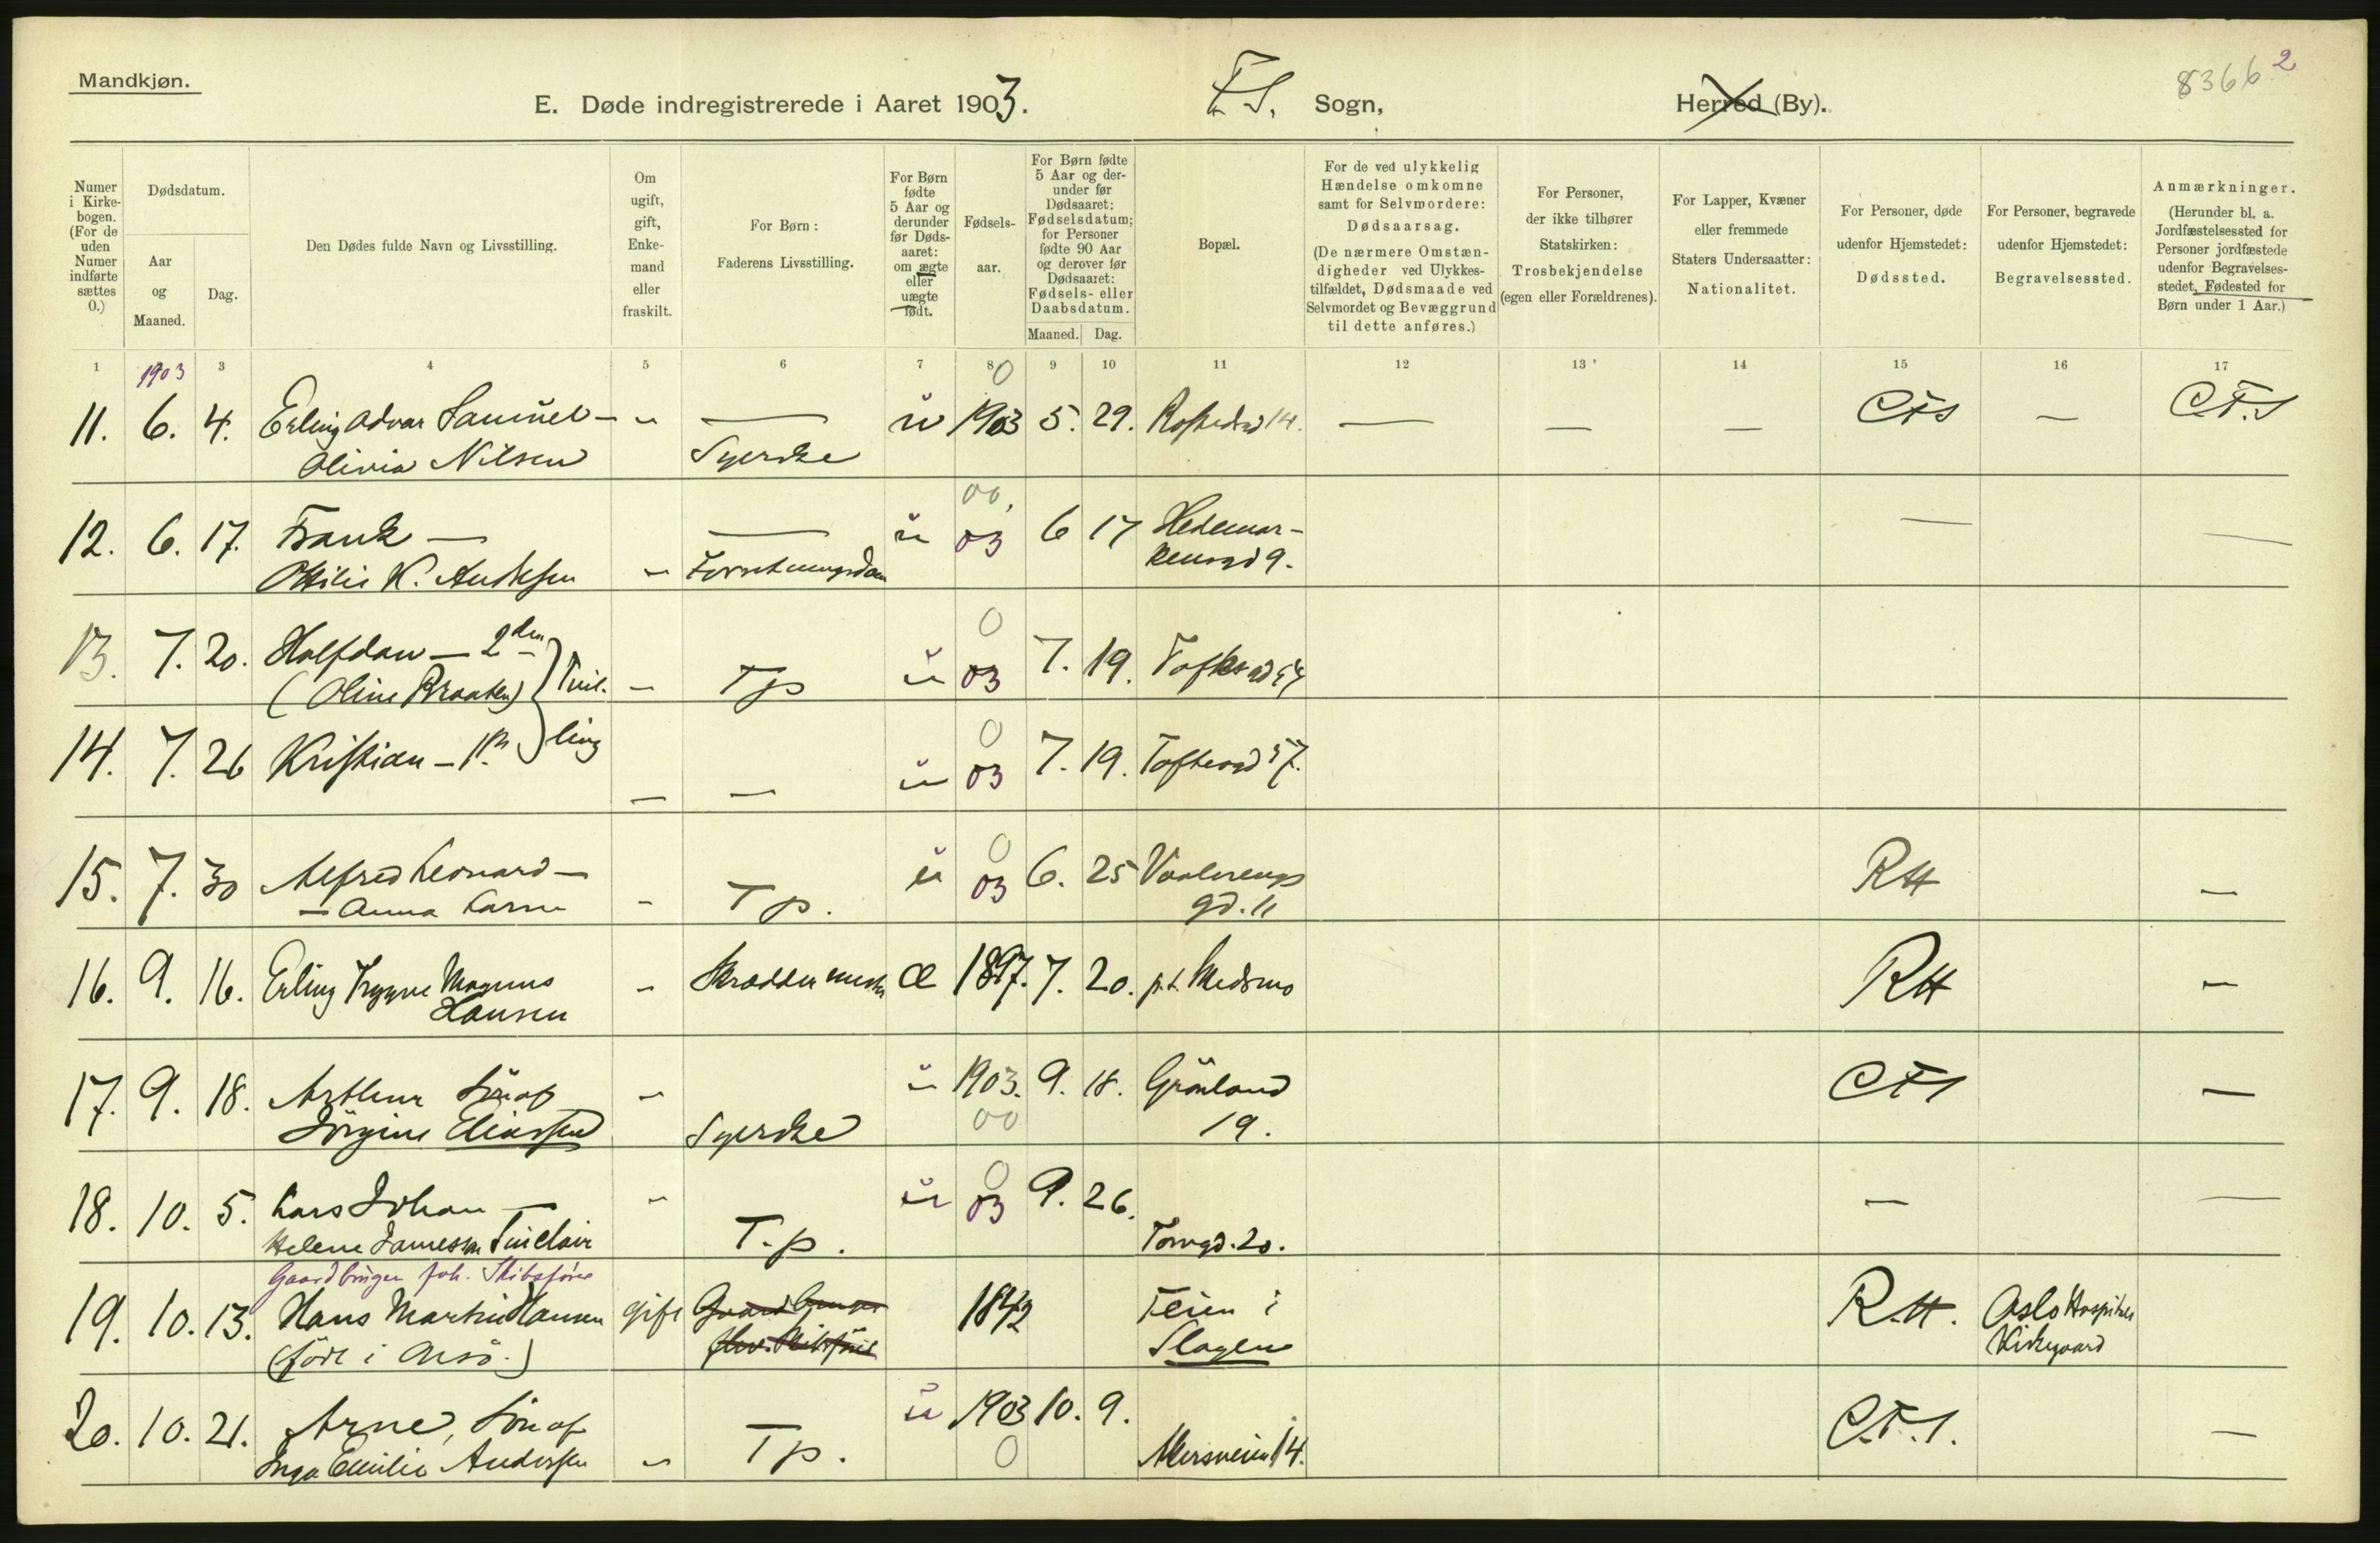 Mandkjøn.
8366 2
E. Døde indregistrerede i Aaret 1903. F.S. Sogn, Herred (By).
Numer i Kirke-bogen. (For de uden Numer indførte sættes 0.)
Dødsdatum.
Aar og Maaned.
Dag.
Den Dødes fulde Navn og Livsstilling.
Om ugift, gift, Enke-mand eller fraskilt.
For Børn: Faderens Livsstilling.
For Børn fødte 5 Aar og derunder før Døds-aaret: om ægte eller uægte født.
Fødsels-aar.
For Børn fødte 5 Aar og der-under før Dødsaaret: Fødselsdatum; for Personer fødte 90 Aar og derover før Dødsaaret: Fødsels- eller Daabsdatum.
Maaned. Dag.
Bopæl.
For de ved ulykkelig Hændelse omkomne samt for Selvmordere: Dødsaarsag. (De nærmere Omstæn-digheder ved Ulykkes-tilfældet, Dødsmaade ved Selvmordet og Bevæggrund til dette anføres.)
For Personer, der ikke tilhører Statskirken: Trosbekjendelse (egen eller Forældrenes).
For Lapper, Kvæner eller fremmede Staters Undersaatter: Nationalitet.
For Personer, døde udenfor Hjemstedet: Dødssted.
For Personer, begravede udenfor Hjemstedet: Begravelsessted.
Anmærkninger. (Herunder bl. a. Jordfæstelsessted for Personer jordfæstede udenfor Begravelses-stedet, Fødested for Børn under 1 Aar.)
1 1903 3 4 5 6 7 8 9 10 11 12 13 14 15 16 17
0
11. 6. 4. Erling Advar Samuel - " — u 1903 5. 29. 14. — — — CFS — C.F.S
Olivia Nilsen Syerske
00,
12. 6. 17. Frank — — u 03 6 17 Hedemar- — —
Ottilie K. - kensgd 9.
0
13. 7. 20. Halfdan — 2den u 03 7. 19.
(Oline Braaten) Tvil- - Tp
0
14. 7. 26 Kristian - ling u 03 7. 19. Toftesgd 57.
— —
0
15. 7. 30 Alfred Leonard - u 03 6. 25 Vaalerengs RH —
- Anna - Tp. gd. 11
16. 9. 16. Erling Trygve Magnus - æ 1897. 7. 20. p.t. Skedsmo RH —
Hansen
17. 9. 18. Arthur Sön af - u 1903. 9. 18. Grönland CFS —
Jörgine Eliassen Syerske 00 19.
0
18. 10. 5. Lars Johan — - u 03 9. 26. — —
Helene Jamesen Sinclair T.p. Torvgd. 20.
Gaardbruger foh. Skibsförer
19. 10. 13. Hans Martin Hansen gift Gaardbruger 1842 Teien i R.H. Oslo Hospitals
(född i) Slagen Kirkegaard
20. 10. 21. Arne, Sön af u 1903 10. 9. C.F.S. —
Inga Emilie Andersen " Tp. 0 Akersveien 14.